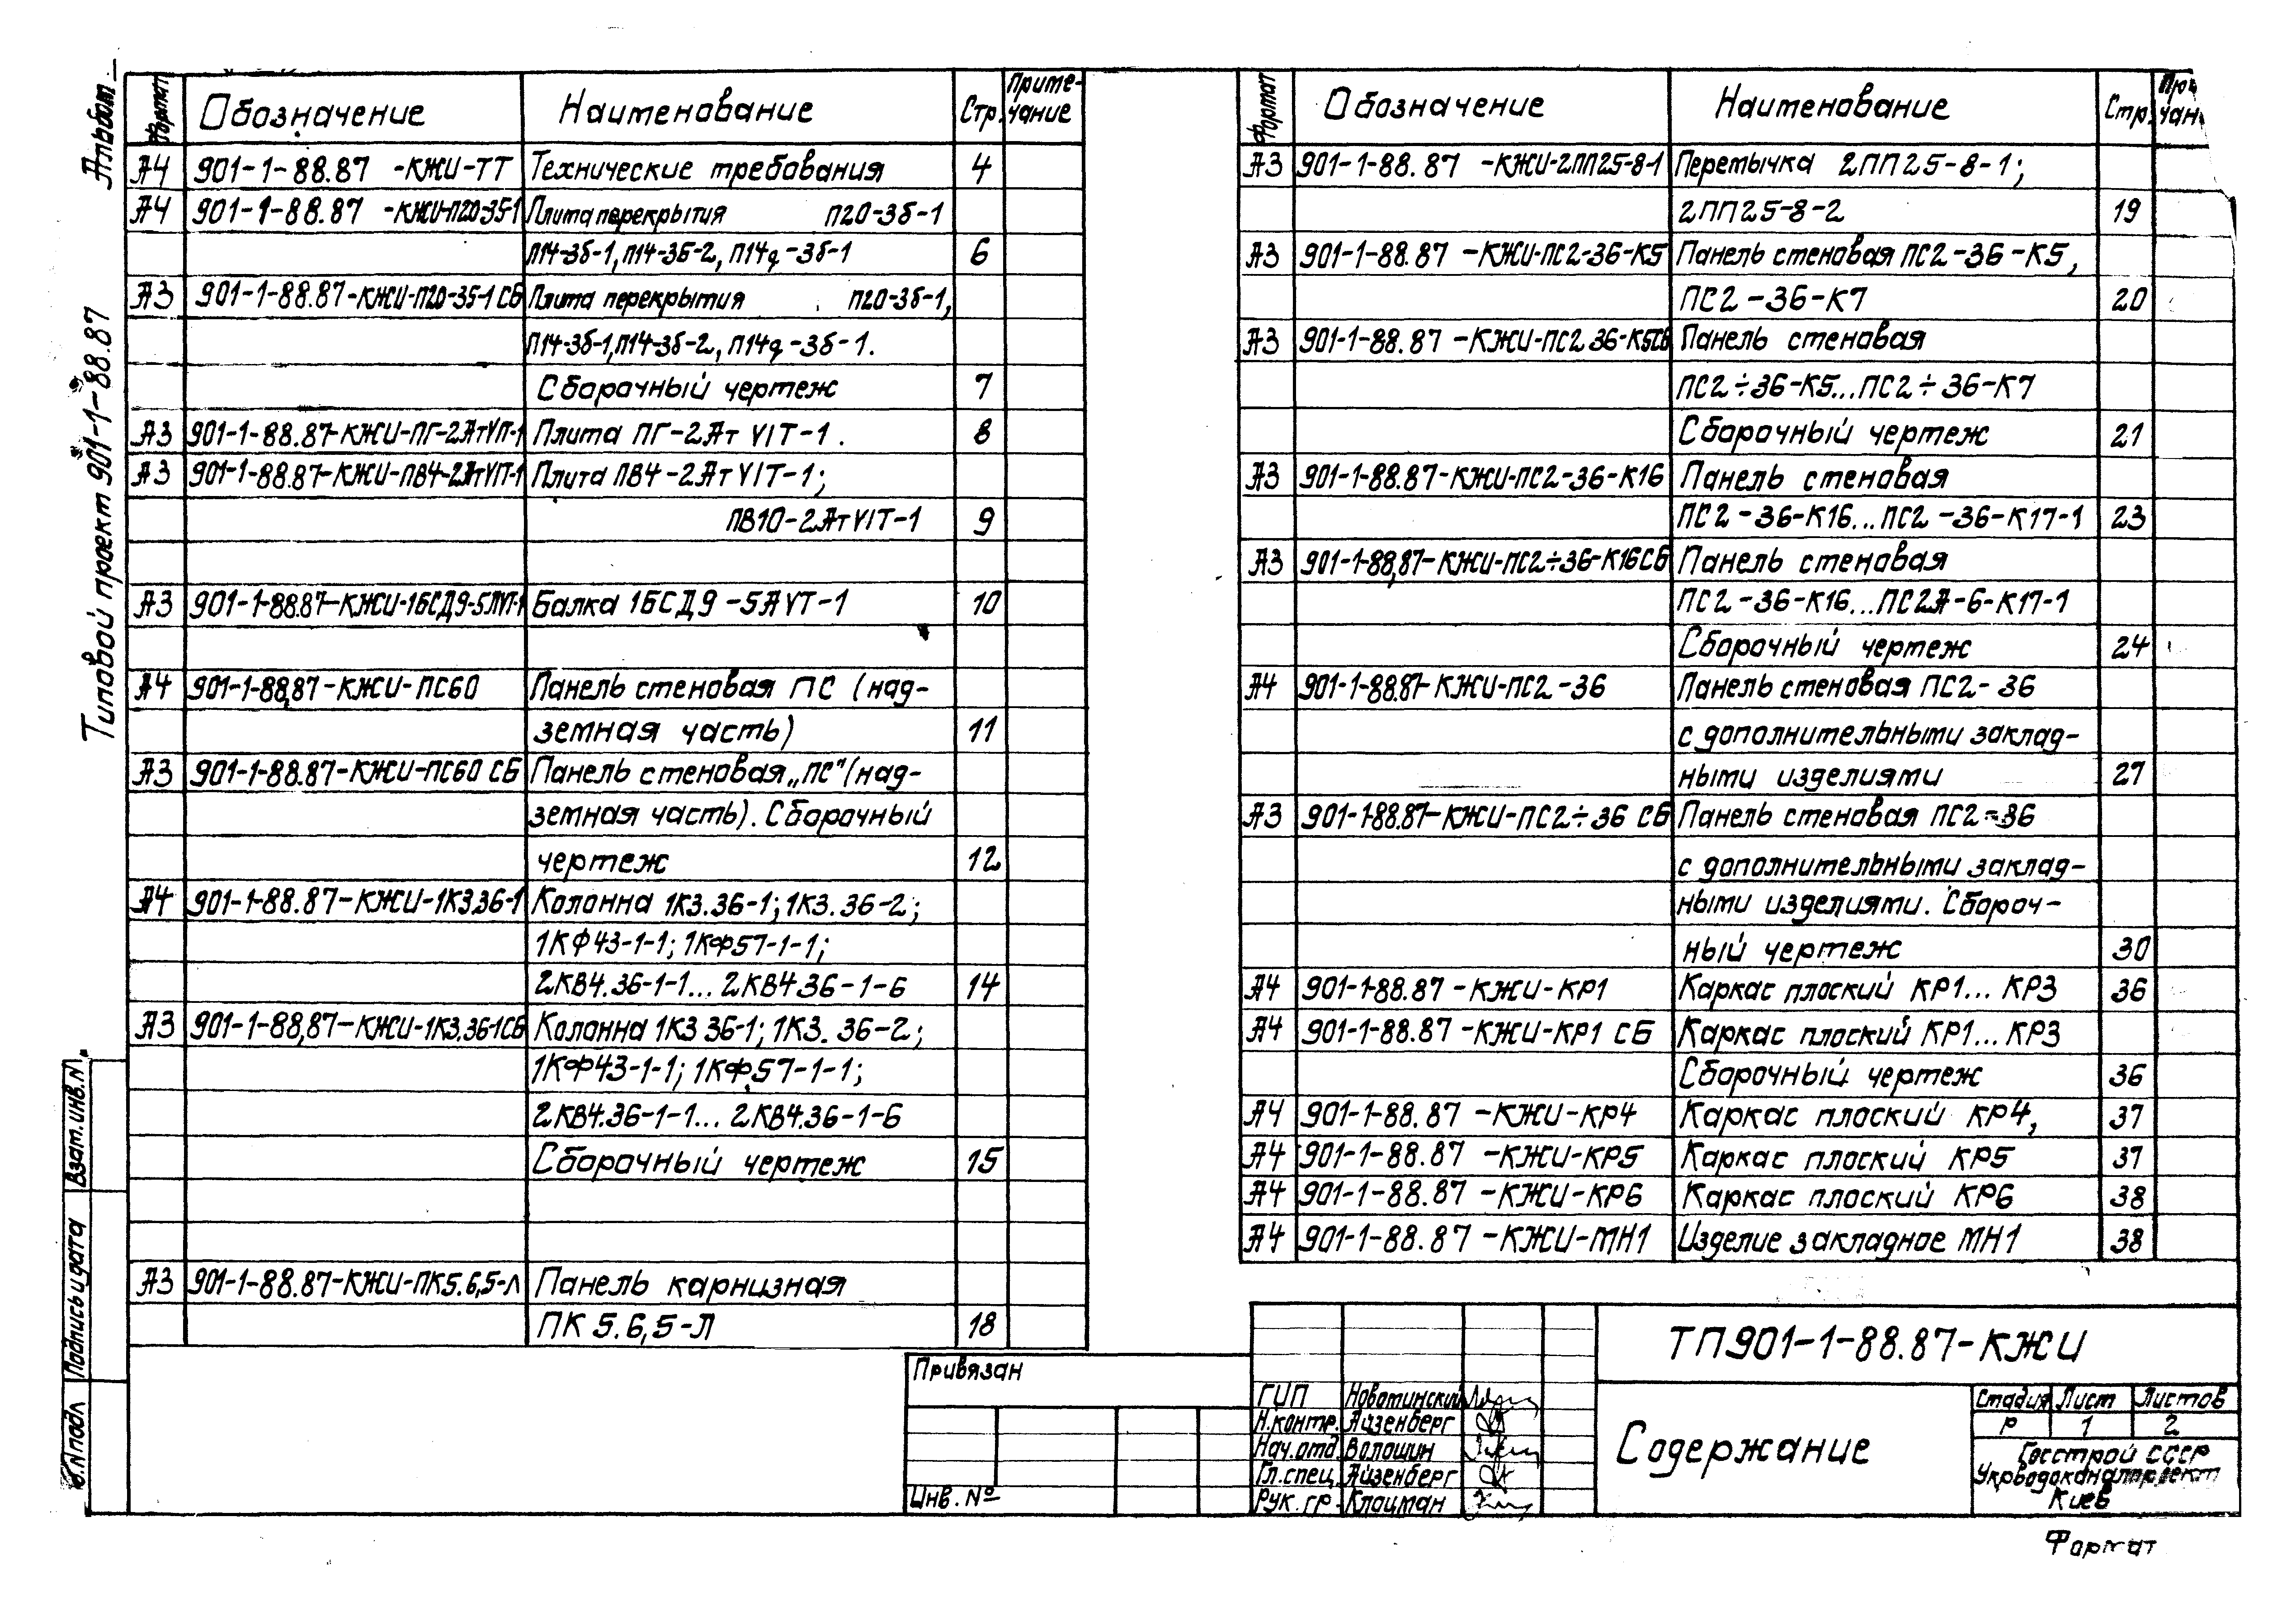 Альбом
Типовой проект 901-1-88.87
Взам.инв.N
Подпись и дата
Формат Обозначение Наименование Стр. Приме-чание
А4 901-1-88.87 -КЖИ-ТТ Технические требования 4
А4 901-1-88.87 -КЖИ-П20-35-1 Плита перекрытия П20-3б-1
П14-3б-1, П14-3б-2, П14д-3б-1 6
А3 901-1-88.87-КЖИ-П20-35-1 СБ Плита перекрытия П20-3б-1,
П14-3б-1, П14-3б-2, П14д-3б-1.
Сборочный чертеж 7
А3 901-1-88.87-КЖИ-ПГ-2АтVIТ-1 Плита ПГ-2Ат VIТ-1. 8
А3 901-1-88.87-КЖИ-ПВ4-2АтVIТ-1 Плита ПВ4-2Ат VIТ-1;
ПВ10-2Ат VIТ-1 9
А3 901-1-88.87-КЖИ-1БСД9-5АVТ-1 Балка 1БСД9-5АVТ-1 10
А4 901-1-88,87-КЖИ-ПС60 Панель стеновая ПС (над-
земная часть) 11
А3 901-1-88.87-КЖИ-ПС60 СБ Панель стеновая „ПС" (над-
земная часть). Сборочный
чертеж 12
А4 901-1-88.87-КЖИ-1К3.36-1 Колонна 1К3.36-1; 1К3.36-2;
1КФ43-1-1; 1КФ57-1-1;
2КВ4.36-1-1... 2КВ4 36-1-6 14
А3 901-1-88,87-КЖИ-1К3.36-1СБ Колонна 1К3 36-1; 1К3. 36-2;
1КФ43-1-1; 1КФ57-1-1;
2КВ4.36-1-1... 2КВ4.36-1-6
Сборочный чертеж 15
А3 901-1-88.87-КЖИ-ПК5.6,5-Л Панель карнизная
ПК 5.6,5-Л 18
Формат Обозначение Наименование Стр.
А3 901-1-88.87 -КЖИ-2ПП25-8-1 Перемычка 2ПП25-8-1;
2ПП25-8-2 19
А3 901-1-88.87 -КЖИ-ПС2-36-К5 Панель стеновая ПС2-36-К5,
ПС2-36-К7 20
А3 901-1-88.87 -КЖИ-ПС2 36-К5СБ Панель стеновая
ПС2÷36-К5...ПС2÷36-К7
Сборочный чертеж 21
А3 901-1-88.87-КЖИ-ПС2-36-К16 Панель стеновая
ПС2-36-К16...ПС2-36-К17-1 23
А3 901-1-88,87-КЖИ-ПС2÷36-К16СБ Панель стеновая
ПС2-36-К16...ПС2А-6-К17-1
Сборочный чертеж 24
А4 901-1-88.87-КЖИ-ПС2-36 Панель стеновая ПС2-36
с дополнительными заклад-
ными изделиями 27
А3 901-1-88.87-КЖИ-ПС2÷36 СБ Панель стеновая ПС2-36
с дополнительными заклад-
ными изделиями. Сбороч-
ный чертеж 30
А4 901-1-88.87 -КЖИ-КР1 Каркас плоский КР1... КР3 36
А4 901-1-88.87 -КЖИ-КР1 СБ Каркас плоский КР1... КР3
Сборочный чертеж 36
А4 901-1-88.87 -КЖИ-КР4 Каркас плоский КР4, 37
А4 901-1-88.87 -КЖИ-КР5 Каркас плоский КР5 37
А4 901-1-88.87 -КЖИ-КР6 Каркас плоский КР6 38
А4 901-1-88.87 -КЖИ-МН1 Изделие закладное МН1 38
Привязан
Инв.№
ГИП Новотинский
Н.контр. Айзенберг
Нач.отд. Волошин
Гл.спец. Айзенберг
Рук.гр. Клоцман
ТП901-1-88.87-КЖИ
Содержание
Стадия Лист Листов
Р 1 2
Госстрой СССР
Укрводоканалпроект
Киев
Формат